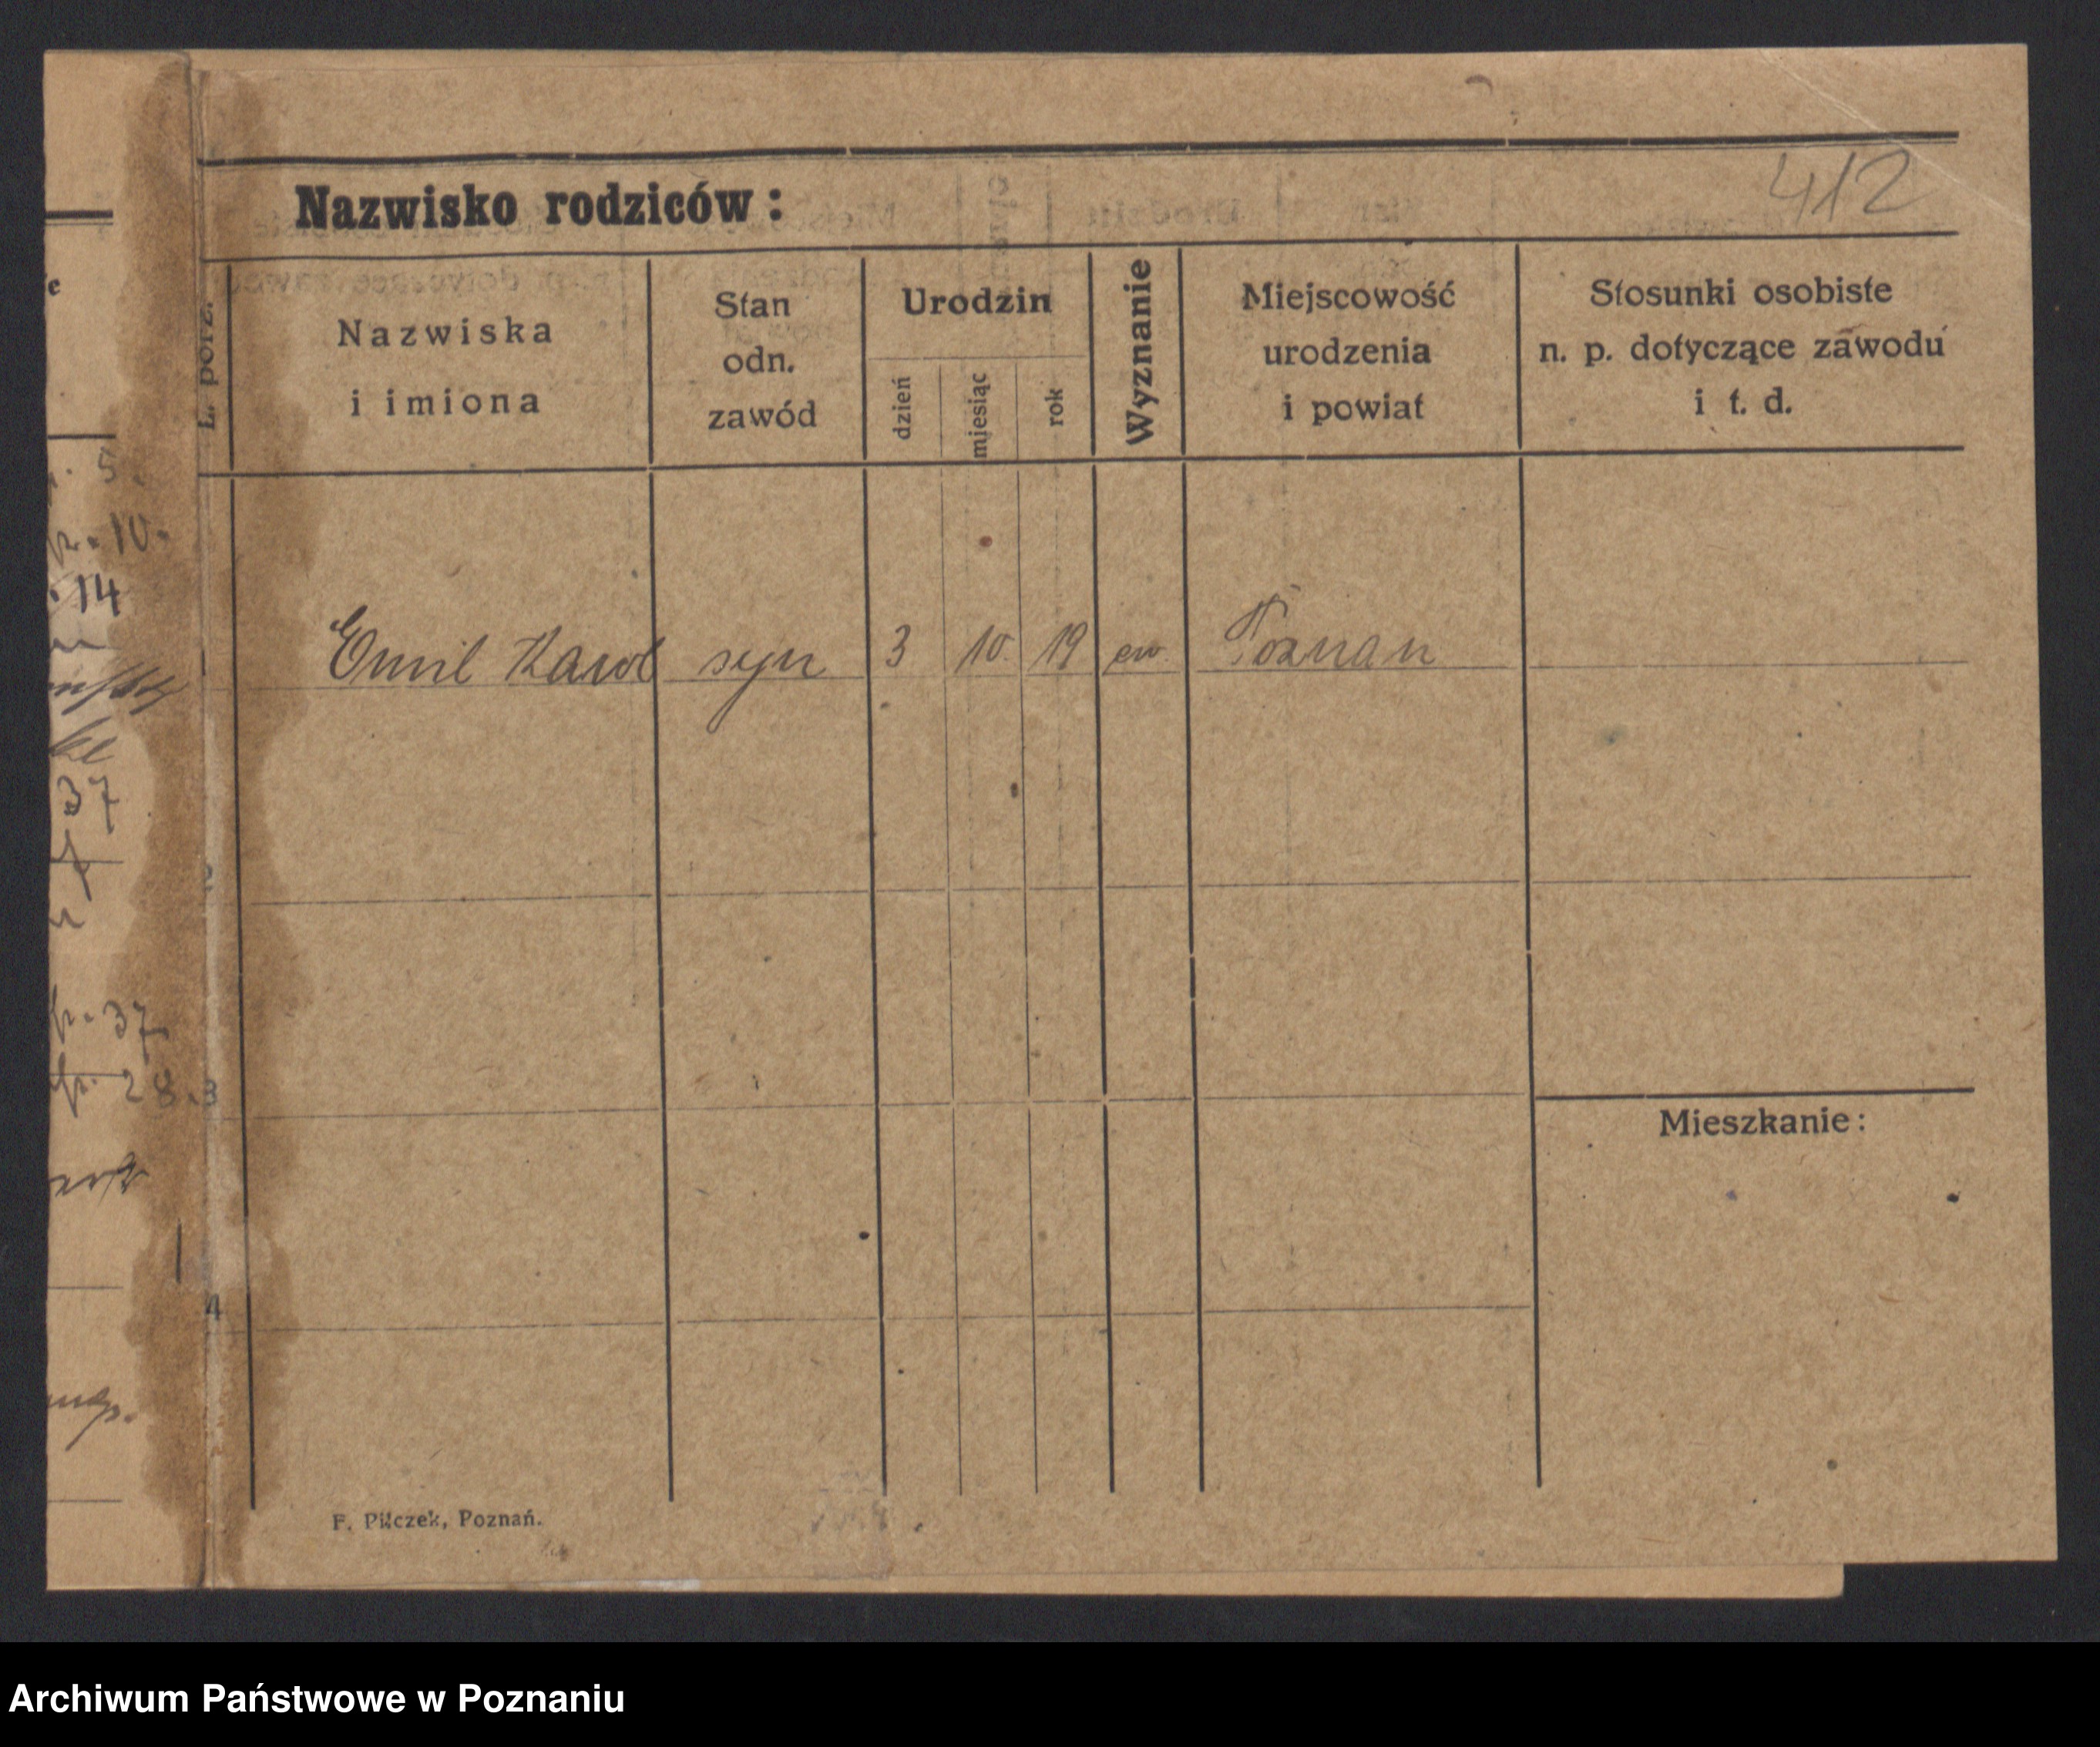 412
Nazwisko rodziców:
L. porz.
Nazwiska
i imiona
Stan
odn.
zawód
Urodzin
dzień
miesiąc
rok
Wyznanie
Miejscowość
urodzenia
i powiat
Stosunki osobiste
n. p. dotyczące zawodu
i t. d.
5.
10.
14
Emil Karol syn 3 10. 19 ew. Poznan
37
37
28.
3
4
Mieszkanie:
F. Pilczek, Poznań.
Archiwum Państwowe w Poznaniu